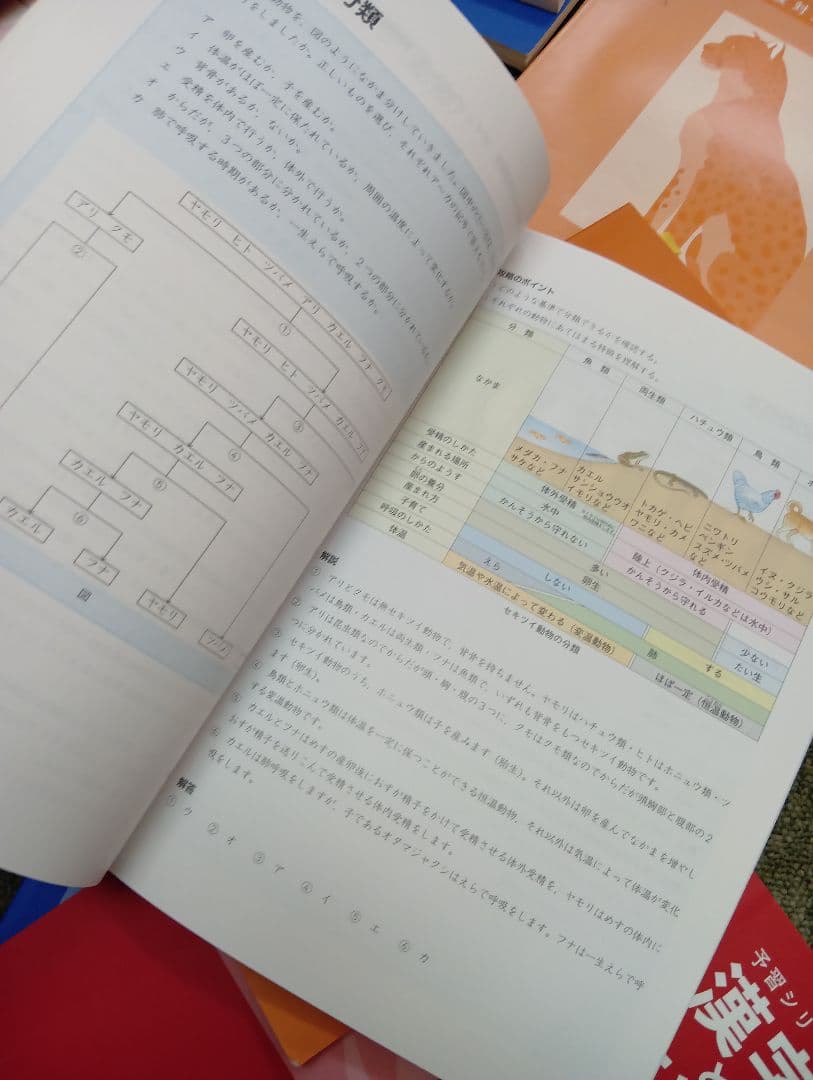 分類
動物を、図のようになかま分けしていきました。
をしましたか。正しいものを選び、それぞれア〜カの記号で
ア 卵を産むか、子を産むか。
イ 体温がほぼ一定に保たれているか、周囲の温度によって変化するか。
ウ 背骨があるか、ないか。
エ 受精を体内で行うか、体外で行うか。
オ からだが、3つの部分に分かれているか、2つの部分に分かれているか。
カ 肺で呼吸する時期があるか、一生えらで呼吸するか。
ヤモリ ヒト ツバメ アリ カエル フナ クモ
①
アリ クモ
②
ヤモリ ヒト ツバメ カエル フナ
③
ヤモリ ツバメ カエル フナ
④
ヤモリ カエル フナ
⑤
カエル フナ
⑥
カエル
フナ
ヤモリ
図
攻略のポイント
どのような基準で分類できるかを確認する。
それぞれの動物にあてはまる特徴を理解する。
分類
魚類
両生類
ハチュウ類
鳥類
なかま
メダカ・フナ
サケなど
カエル
サンショウウオ
イモリなど
トカゲ・ヘビ
ヤモリ・カメ
ワニなど
ニワトリ
ペンギン
スズメ・ツバメ
など
イヌ・クジラ
ウシ・サル
コウモリなど
受精のしかた
体外受精
体内受精
産まれる場所
水中
陸上（クジラ・イルカなどは水中）
からのようす
かんそうから守れない
かんそうから守れる
卵の養分
多い
少ない
産まれ方
卵生
たい生
子育て
しない
する
呼吸のしかた
えら
肺
体温
気温や水温によって変わる（変温動物）
ほぼ一定（恒温動物）
セキツイ動物の分類
解説
① アリとクモは無セキツイ動物で、背骨を持ちません。ヤモリはハチュウ類・ヒトはホニュウ類・ツ
バメは鳥類・カエルは両生類・フナは魚類で、いずれも背骨をもつセキツイ動物です。
② アリは昆虫類なのでからだが頭・胸・腹の3つに、クモはクモ類なのでからだが頭胸部と腹部の2
つに分かれています。
③ セキツイ動物のうち、ホニュウ類は子を産みます（胎生）。それ以外は卵を産んでなかまを増やし
ます（卵生）。
④ 鳥類とホニュウ類は体温を一定に保つことができる恒温動物、それ以外は気温によって体温が変化
する変温動物です。
⑤ カエルとフナはめすの産卵後におすが精子をかけて受精させる体外受精を、ヤモリはめすの体内に
おすが精子を送りこんで受精させる体内受精をします。
⑥ カエルは肺呼吸をしますが、子であるオタマジャクシはえらで呼吸をします。フナは一生えらで呼
吸をします。
解答
① ウ ② オ ③ ア ④ イ ⑤ エ ⑥ カ
予習シリ
漢字